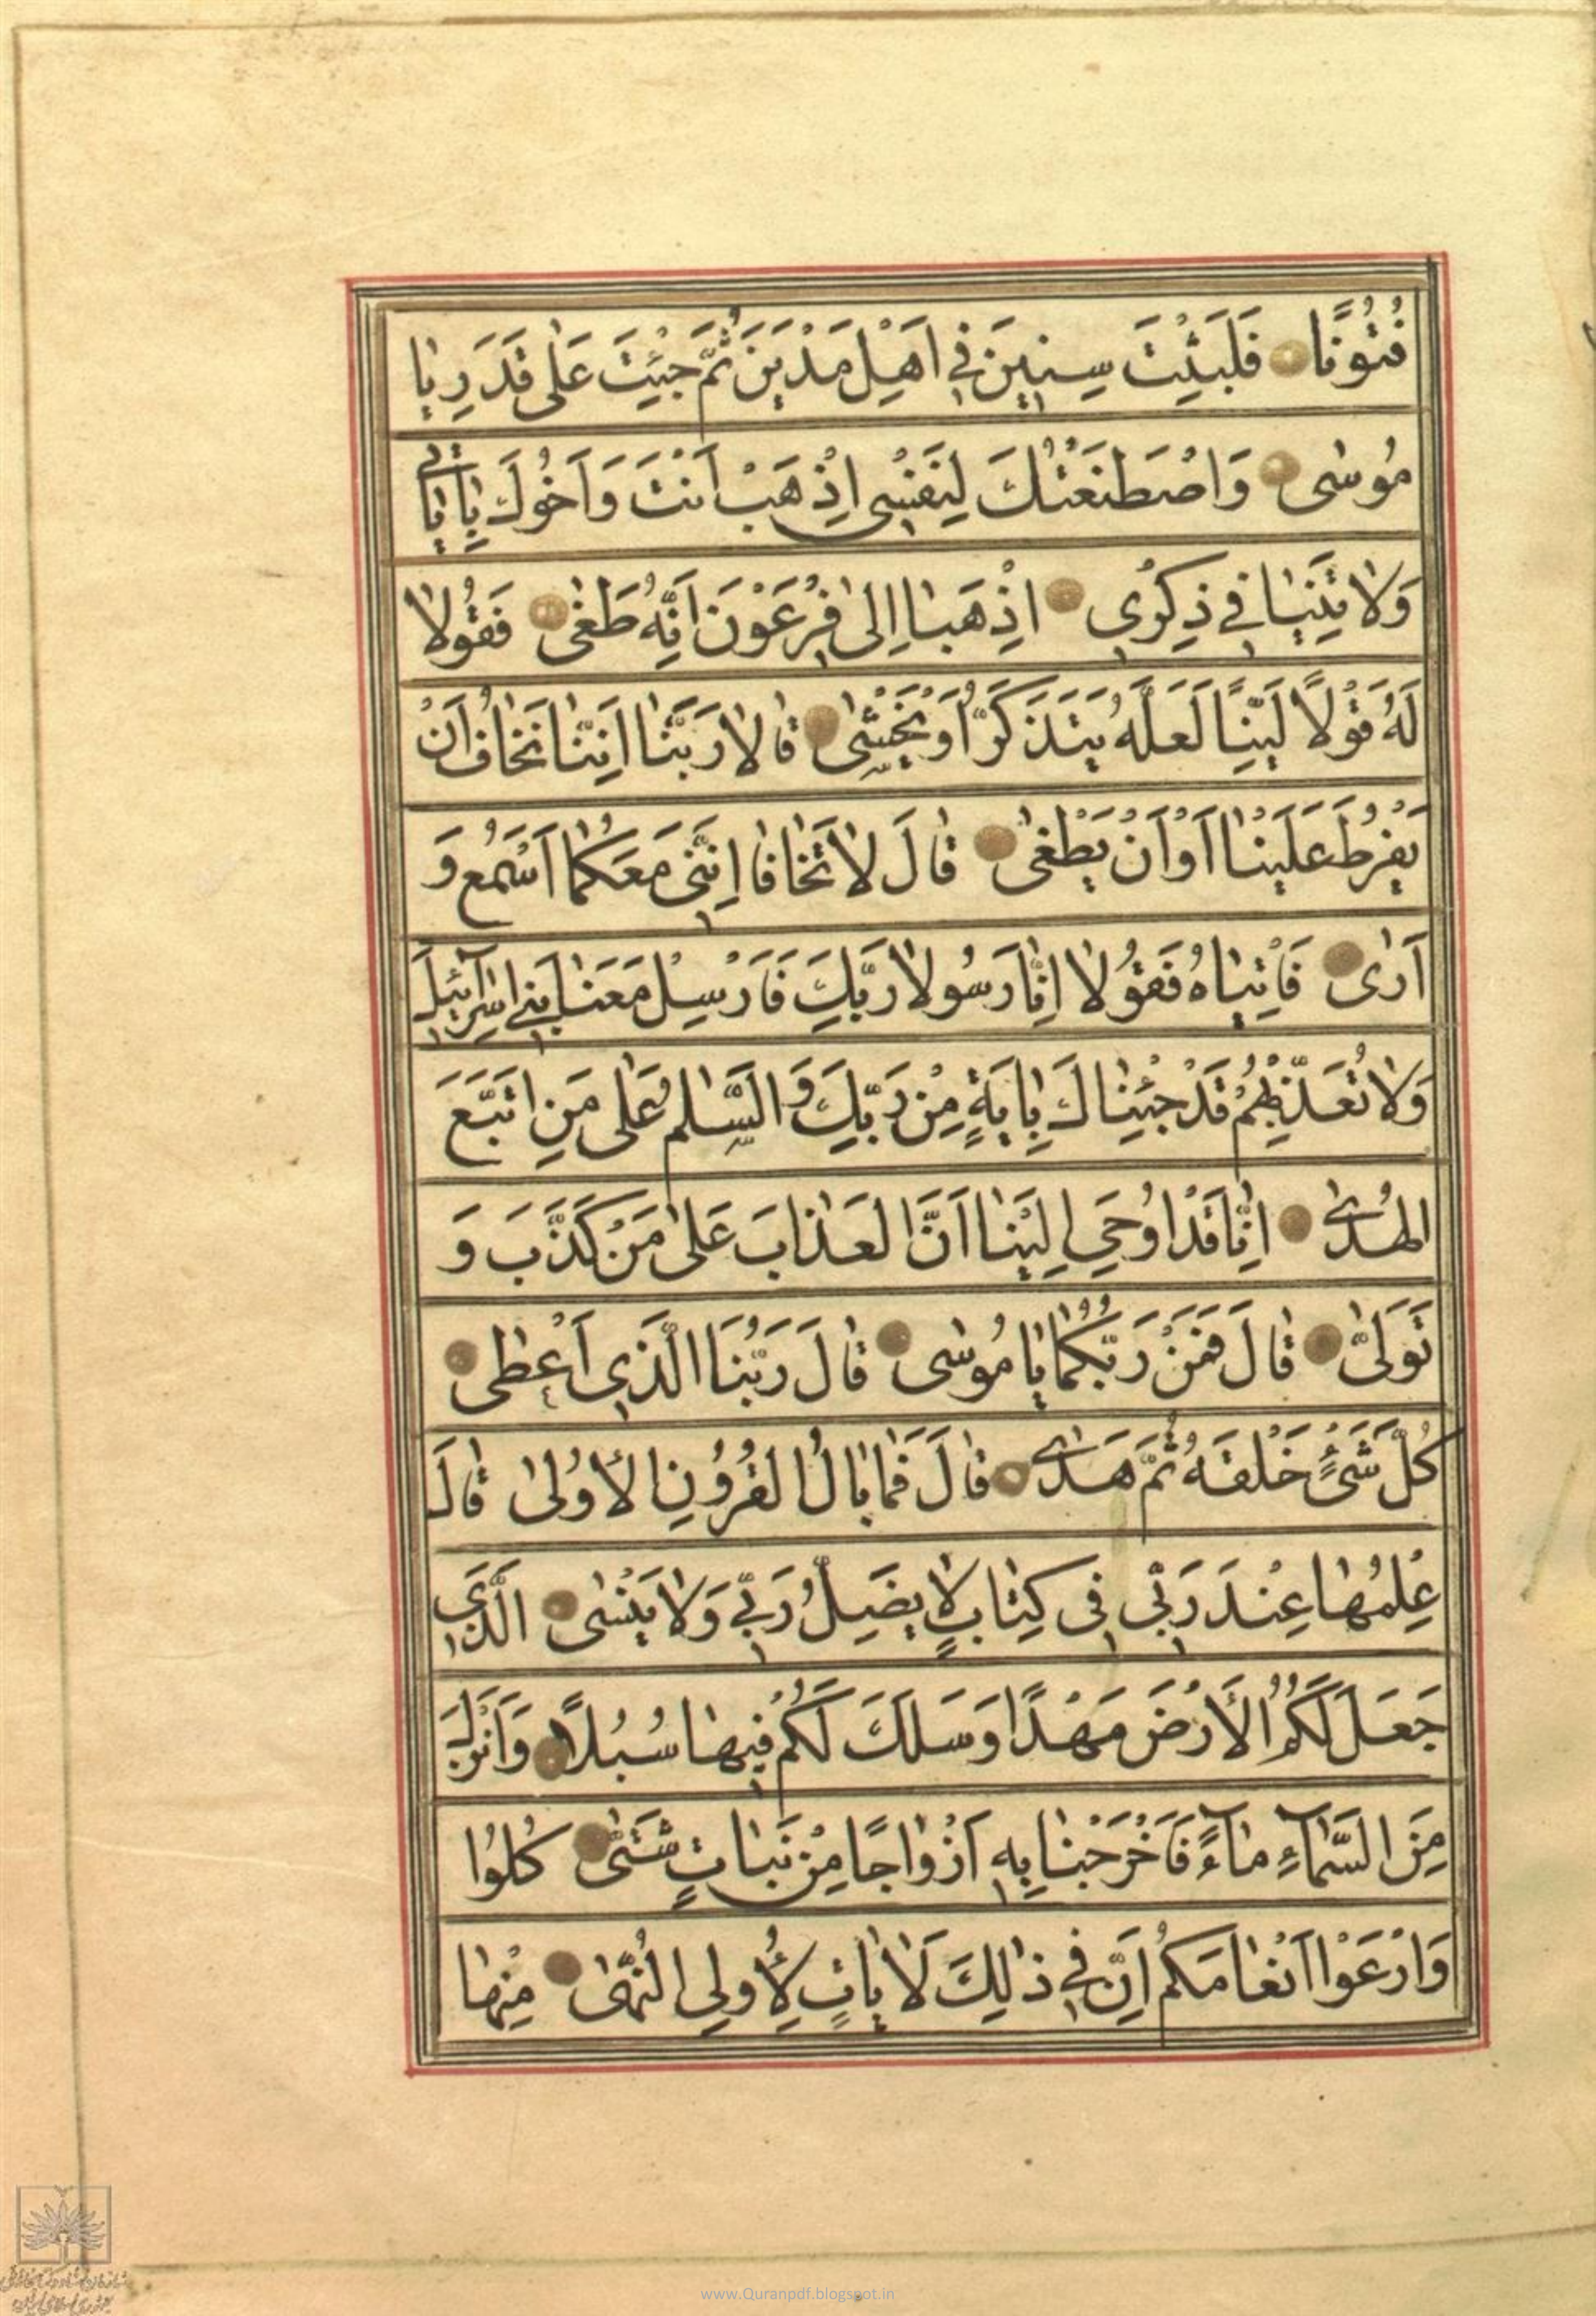 فُتُونًا فَلَبِثْتَ سِنِينَ فِي اَهْلِ مَدْيَنَ ثُمَّ جِئْتَ عَلٰى قَدَرٍ يٰا
مُوسٰى وَاصْطَنَعْتُكَ لِنَفْسِي اِذْهَبْ اَنْتَ وَاَخُوكَ بِاٰيٰاتِي
وَلاٰ تَنِيٰا فِي ذِكْرِي اِذْهَبٰا اِلٰى فِرْعَوْنَ اِنَّهُ طَغٰى فَقُولاٰ
لَهُ قَوْلاً لَيِّنًا لَعَلَّهُ يَتَذَكَّرُ اَوْ يَخْشٰى قٰالاٰ رَبَّنٰا اِنَّنٰا نَخٰافُ اَنْ
يَفْرُطَ عَلَيْنٰا اَوْ اَنْ يَطْغٰى قٰالَ لاٰ تَخٰافٰا اِنَّنِي مَعَكُمٰا اَسْمَعُ وَ
اَرٰى فَاْتِيٰاهُ فَقُولاٰ اِنّٰا رَسُولاٰ رَبِّكَ فَاَرْسِلْ مَعَنٰا بَنِي اِسْرٰآئِيلَ
وَلاٰ تُعَذِّبْهُمْ قَدْ جِئْنٰاكَ بِاٰيَةٍ مِنْ رَبِّكَ وَالسَّلٰمُ عَلٰى مَنِ اتَّبَعَ
الْهُدٰى اِنّٰا قَدْ اُوحِيَ اِلَيْنٰا اَنَّ الْعَذٰابَ عَلٰى مَنْ كَذَّبَ وَ
تَوَلّٰى قٰالَ فَمَنْ رَبُّكُمٰا يٰا مُوسٰى قٰالَ رَبُّنَا الَّذِي اَعْطٰى
كُلَّ شَيْءٍ خَلْقَهُ ثُمَّ هَدٰى قٰالَ فَمٰا بٰالُ الْقُرُونِ الْاُولٰى قٰالَ
عِلْمُهٰا عِنْدَ رَبِّي فِي كِتٰابٍ لاٰ يَضِلُّ رَبِّي وَلاٰ يَنْسٰى الَّذِي
جَعَلَ لَكُمُ الْاَرْضَ مَهْدًا وَسَلَكَ لَكُمْ فِيهٰا سُبُلاً وَاَنْزَلَ
مِنَ السَّمٰآءِ مٰآءً فَاَخْرَجْنٰا بِهِ اَزْوٰاجًا مِنْ نَبٰاتٍ شَتّٰى كُلُوا
وَارْعَوْا اَنْعٰامَكُمْ اِنَّ فِي ذٰلِكَ لَاٰيٰاتٍ لِاُولِي النُّهٰى مِنْهٰا
www.Quranpdf.blogspot.in